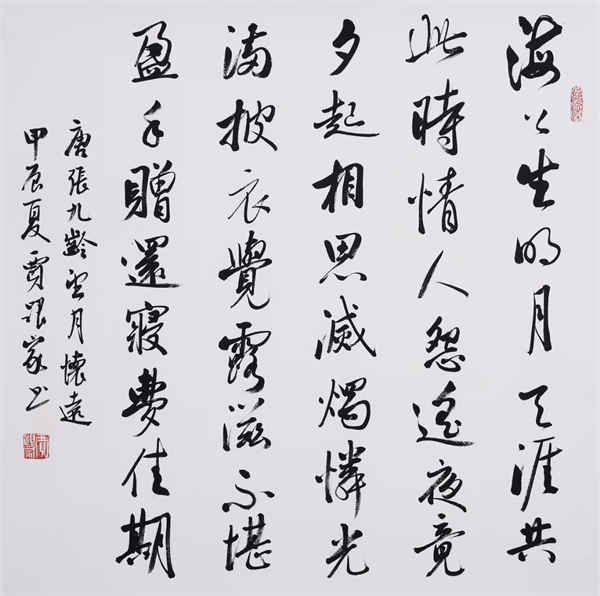 海上生明月天涯共
此時情人怨遙夜竟
夕起相思滅燭憐光
滿披衣覺露滋不堪
盈手贈還寢夢佳期
唐張九齡望月懷遠
甲辰夏賈書